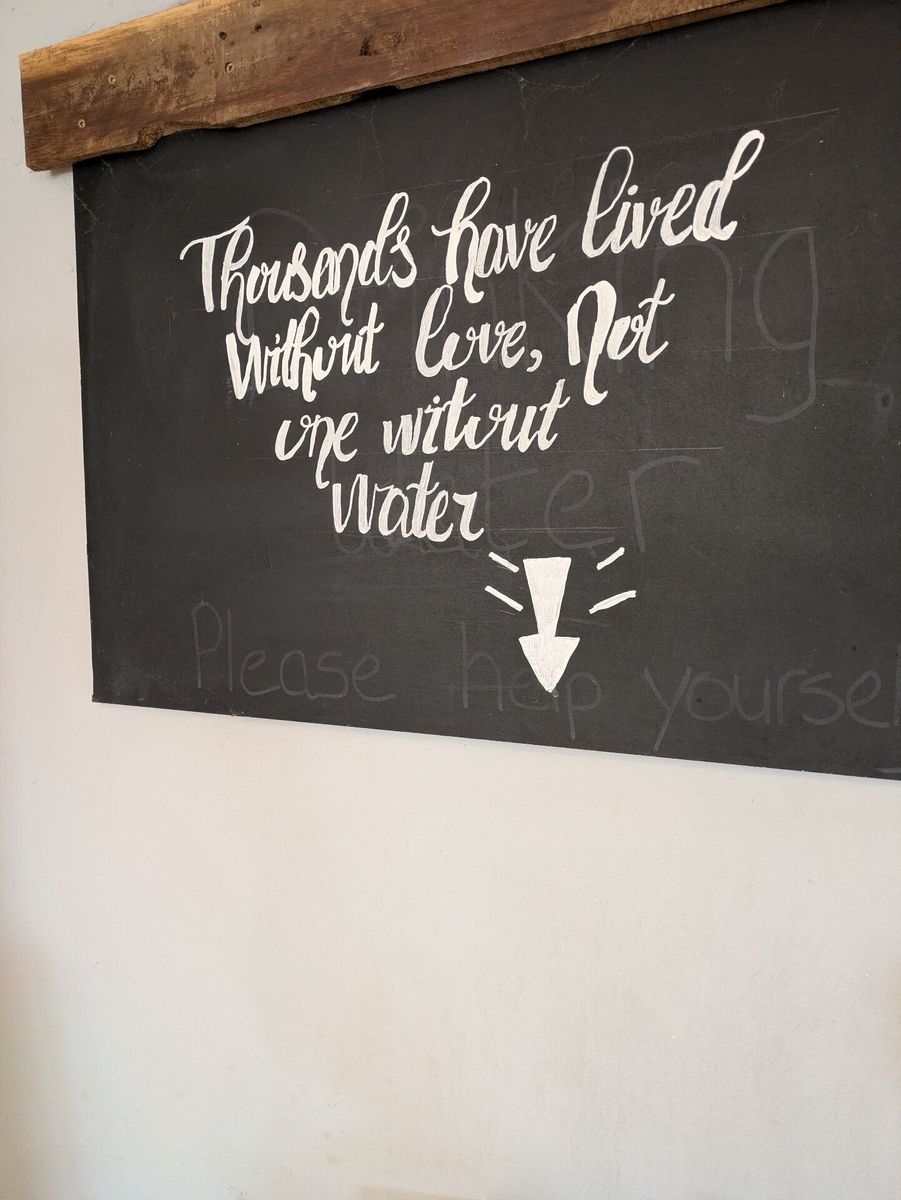 Thousands have lived
Without love, Not
one witout
Water
Drinking
water
Please help yourse